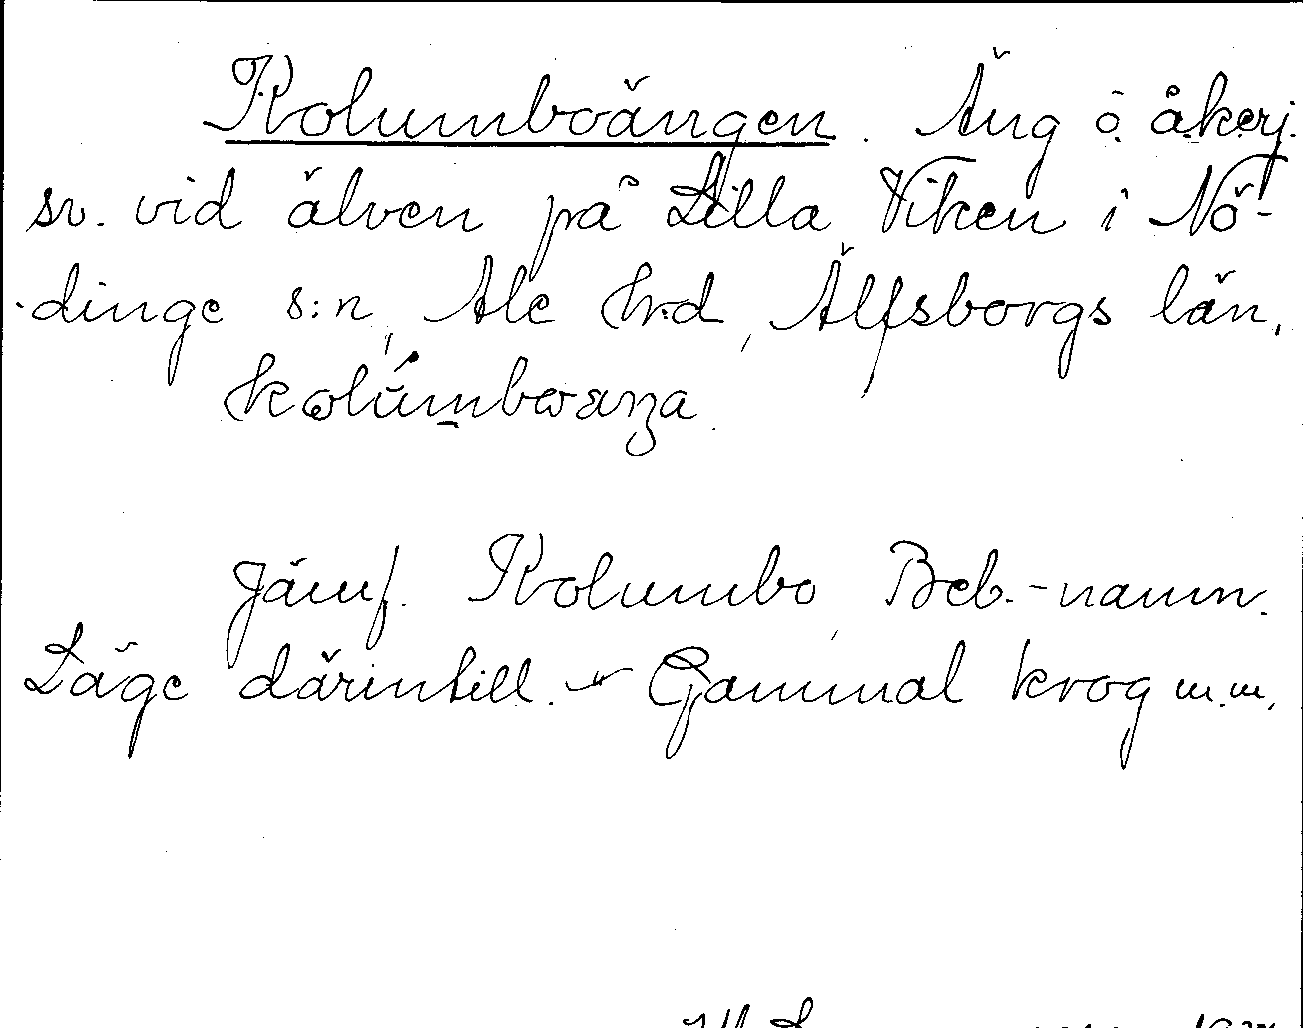 Kolumboängen. Äng o. åkerj.
sv. vid älven på Lilla Viken i Nö-
dinge s:n, Ale hd, Älfsborgs län.
Jämf. Kolumbo, Beb.-namn.
Läge därintill. - Gammal krog m.m.